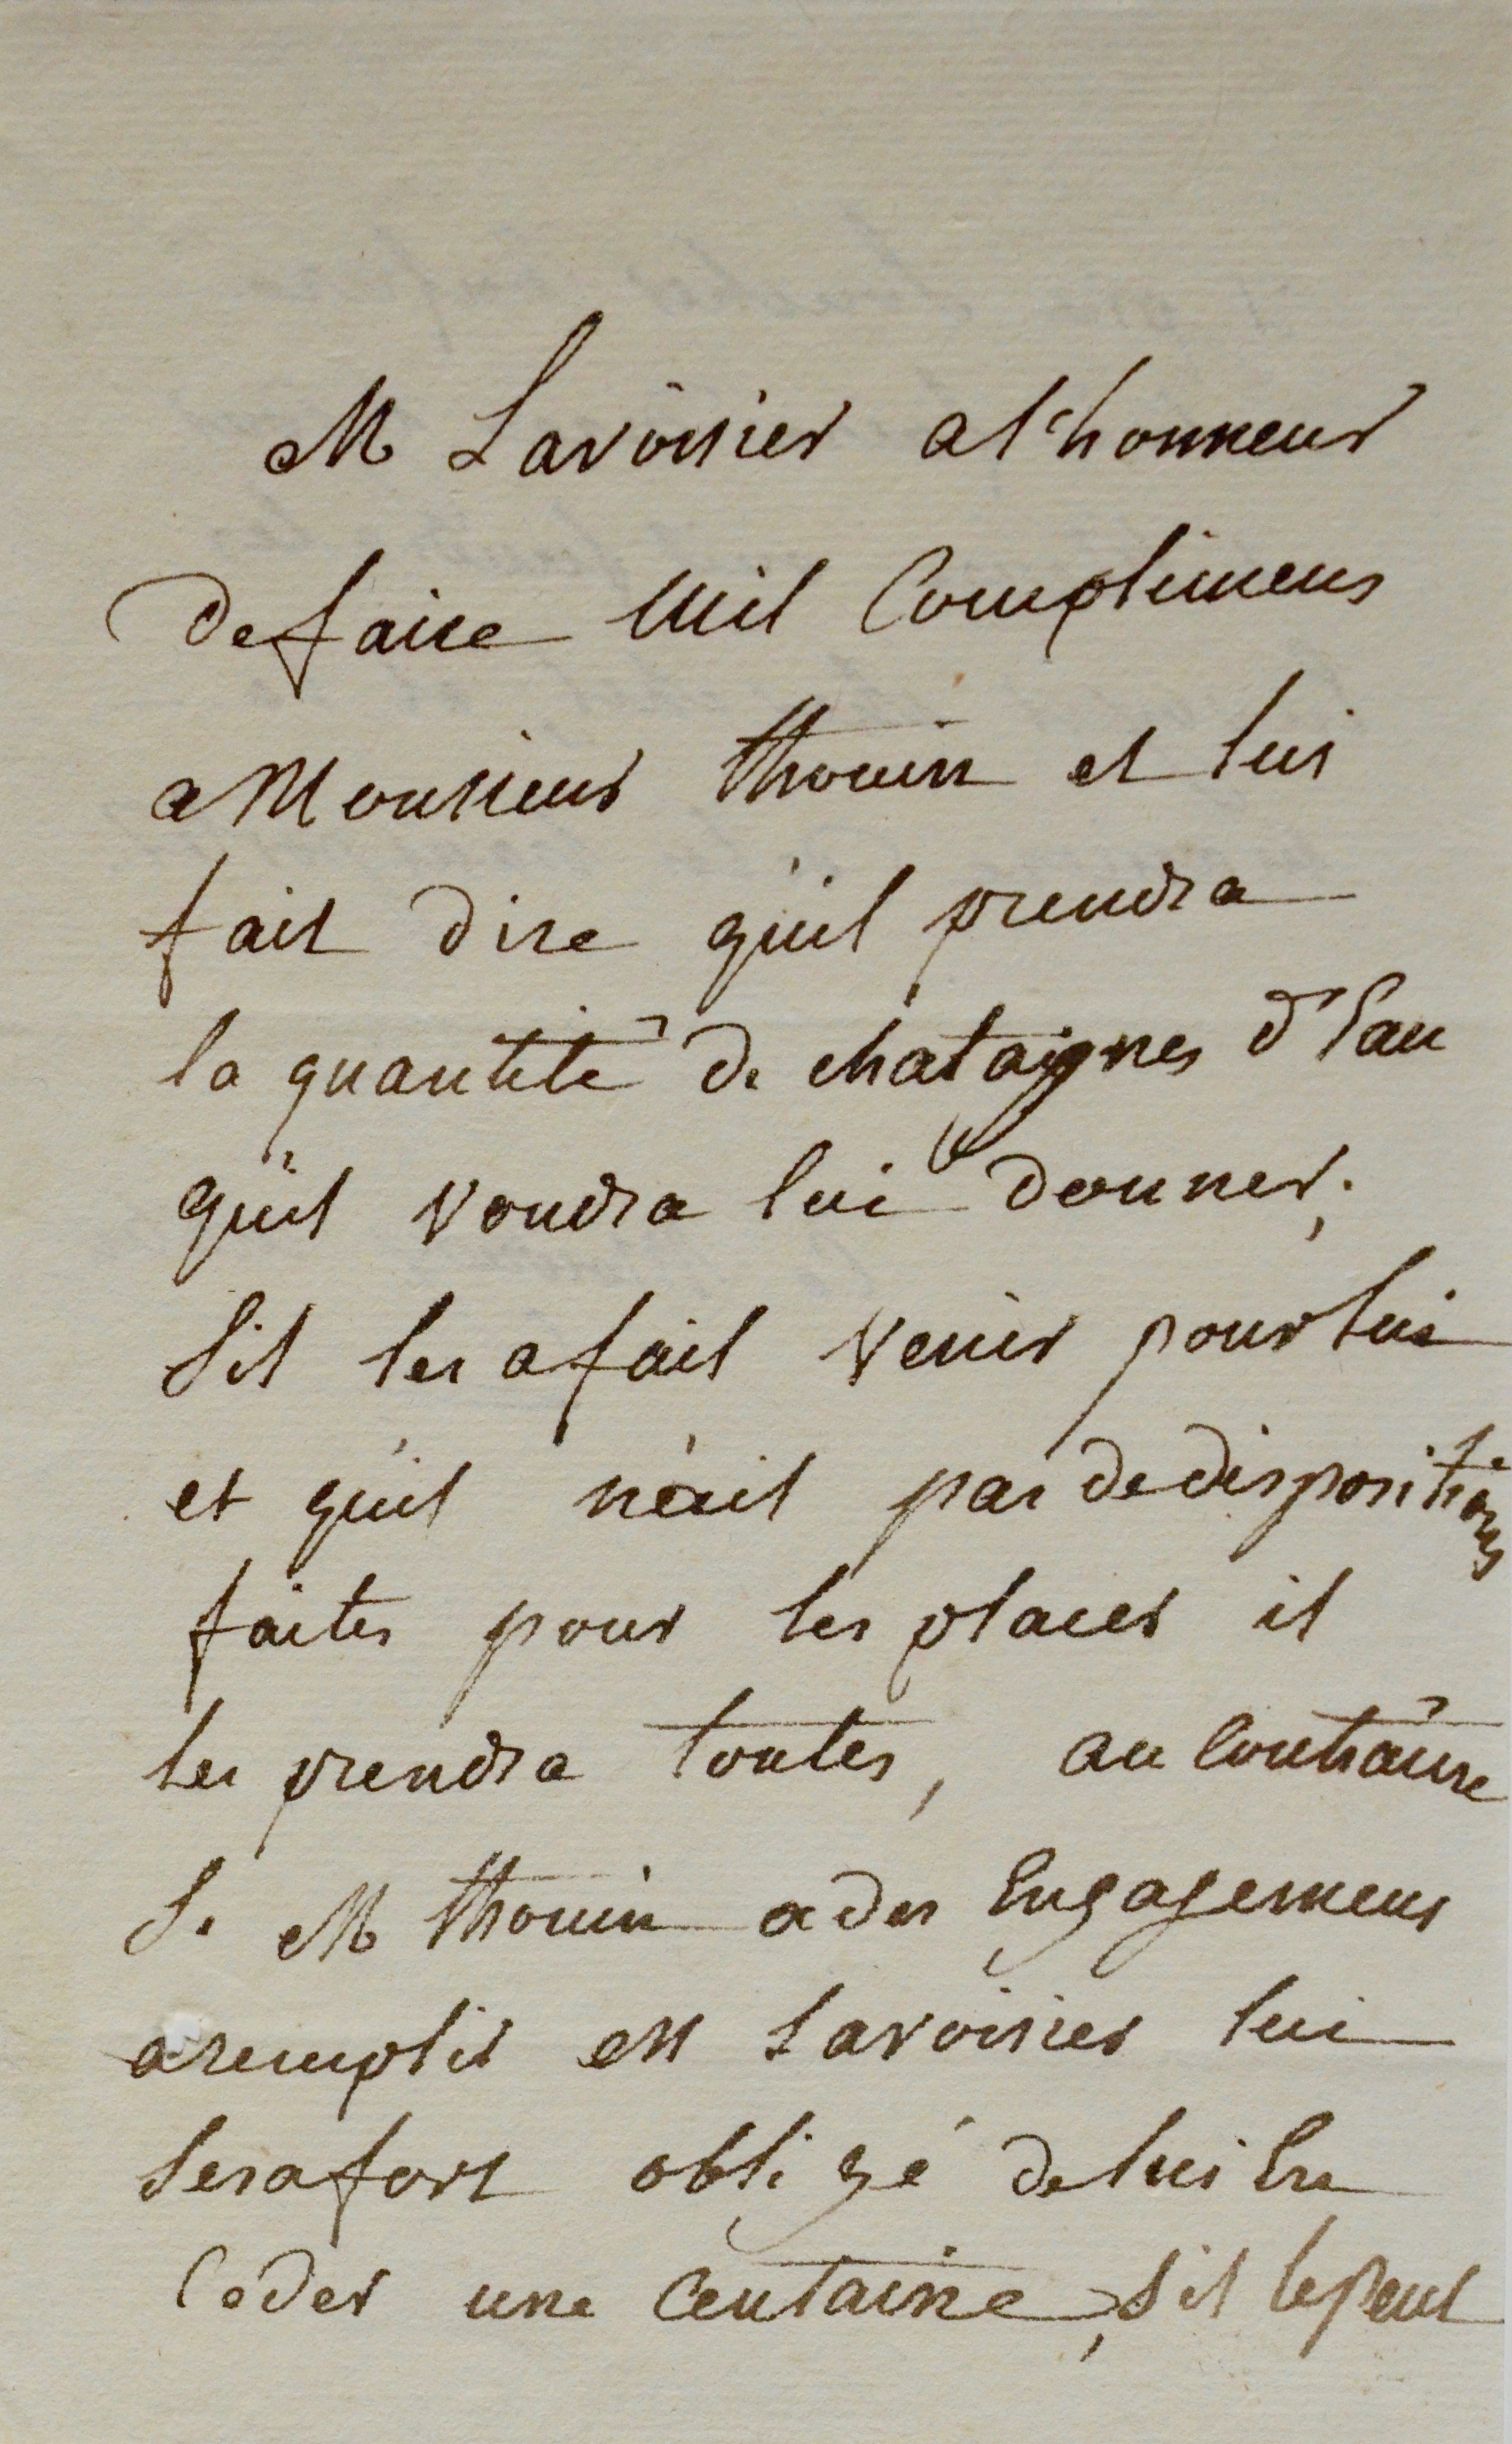 M Lavoisier a l'honneur
de faire Mil Complimens
a Monsieur thouin et lui
fait dire qu'il prendra
la quantité de chataignes d'Eau
qu'il voudra lui donner.
S'il les a fait venir pour lui
et qu'il n'ait pas de dispositions
faites pour les placer il
les prendra toutes, au Contraire
Si M thouin a des Engagemens
a remplir M Lavoisier lui
Sera fort obligé de lui En
Ceder une Centaine, s'il le peut